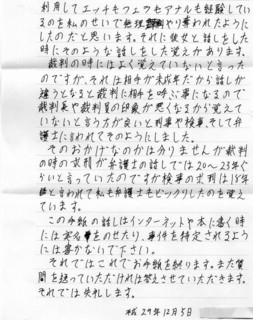 利用してエッチもフェラもアナルも経験してい
るのを私のせいで無理やり奪われたようにし
たのだと思います。それに彼女と話しをした
時にそのような話しをした覚えがあります。
裁判の時にはよく覚えていないと言った
のですが、それは相手が未成年だから話しが
違うとなると裁判に相手を呼ぶ事になるので
裁判長や裁判員の印象が悪くなるから覚えて
いないと言う方が良いと刑事や検事、そして弁
護士に言われてそのようにしました。
そのおかげなのかは分りませんが裁判
の時の求刑が弁護士の話しでは20〜23年ぐ
らいと言っていたのですが検事の求刑は18年
と言われて私も弁護士もビックリしたのを覚え
ています。
この手紙の話しはインターネットや本に書く時
には実名をのせたり、事件を特定されるよう
には書かないで下さい。
それではこれでお手紙を終ります。また質
問を送っていただければ答えさせていただきます。
それでは失礼します。
平成29年12月5日